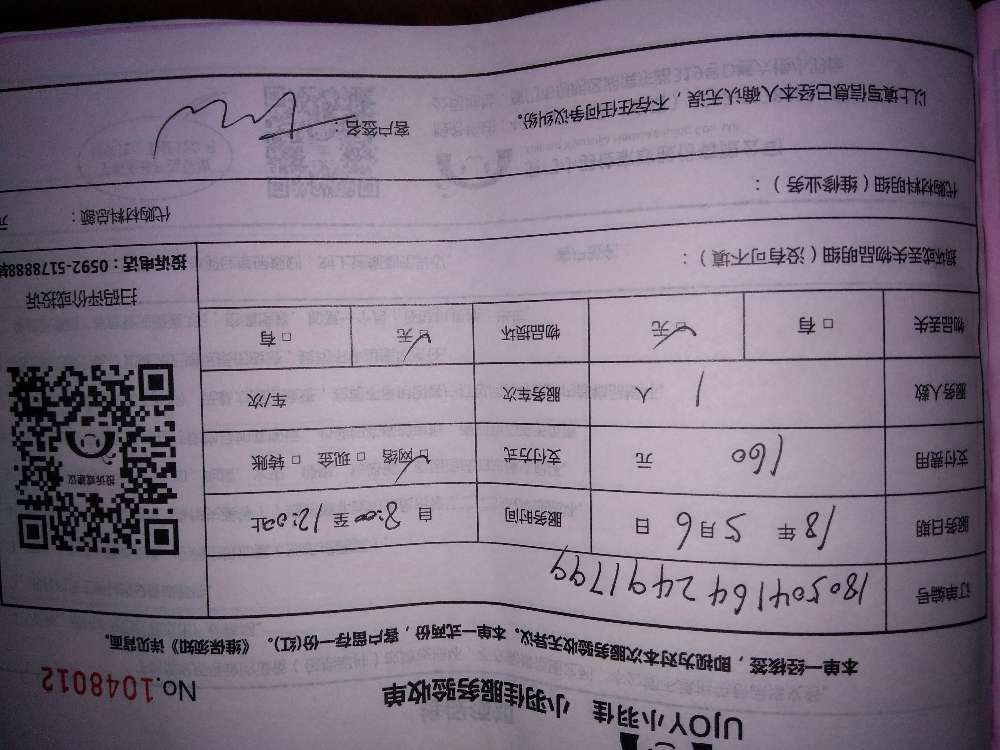 UJOY小羽佳 小羽佳服务验收单
No.1048012
本单一经核签，即视为对本次服务验收无异议。本单一式两份，客户留存一份(红)。《维保须知》详见背面。
订单编号 180504164249179
服务日期 18 年 5 月 6 日 服务时间 自 8:00 至 12:00止
支付费用 160 元 支付方式 □网络 □现金 □转账
服务人数 1 人 服务车次 车/次
物品丢失 □有 □无 物品损坏 □无 □有
投诉或建议
扫码评价或投诉
投诉电话：0592-5178888转
损坏或丢失物品明细（没有可不填）：
代购材料明细（维修业务）： 代购材料总额： 元
以上填写信息已经本人确认无误，不存在任何争议纠纷。 客户签名：